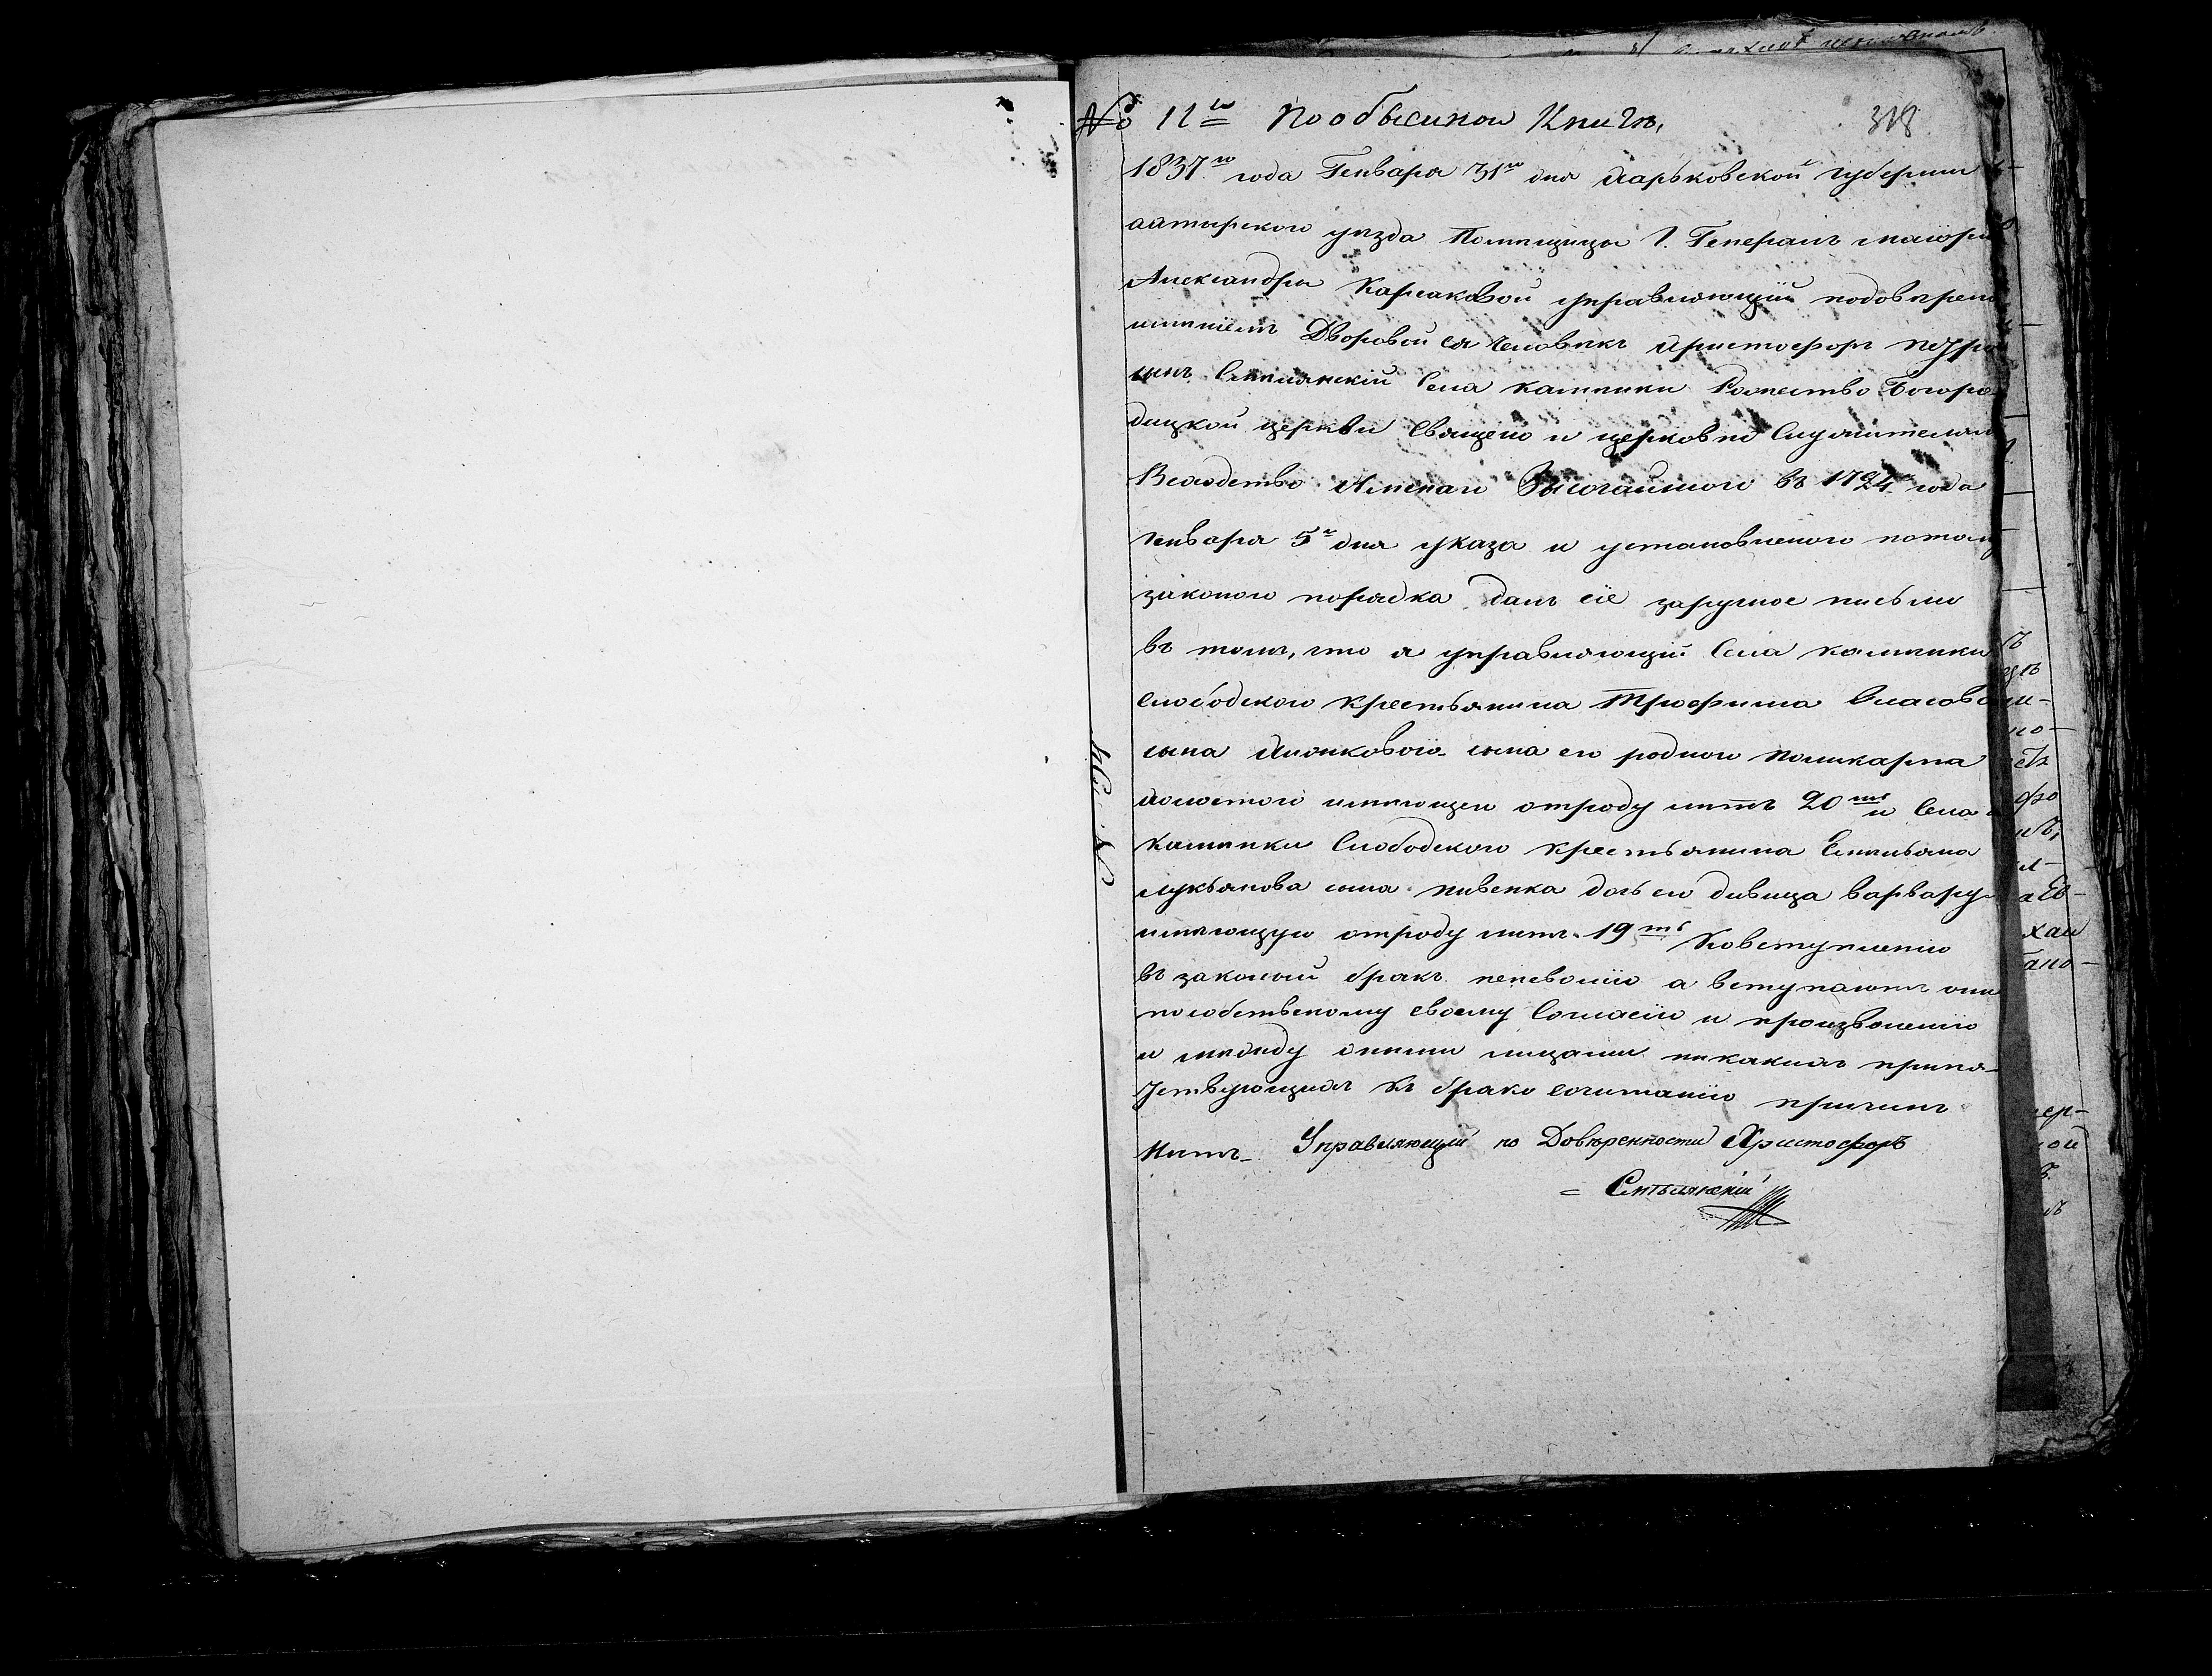 № 11го по обыскной Книгѣ, 318
1837го года Генваря 31го дня Харьковской губернии
ахтырского уѣзда Помѣщицы Г. Генералъ маіорши
Александры Карсаковой управляющій подовѣрен
Дворовой ея человѣкъ Христофоръ
сынъ Смѣлянскій Села каплуновки Рожество Богоро
дицкой церкви Священо и церковно Служителям
Вслѣдство Имянаго Высочайшого въ 1724 года
генваря 5го дня указа и установленого потому
законого порядка далъ сіе заручное письмо
въ томъ, что я управляющій Села
слободского крестьянина Трофима Власова
сына сына его родного поликарпа
холостого имѣющего отроду лѣтъ 20ть и Села
Слободского крестьянина Емельяна
лукьянова сына пивенка дочь его дѣвица варвару
имѣющую отроду лѣтъ 19ть Ковступленію
въ законый бракъ неневолю а вступаютъ они
пособственому своему Согласію и произволенію
и между оными лицами никакихъ препя-
тствующихъ къ брако сочитанію причинъ
Нѣтъ Управляющій по Довѣренности Христофоръ